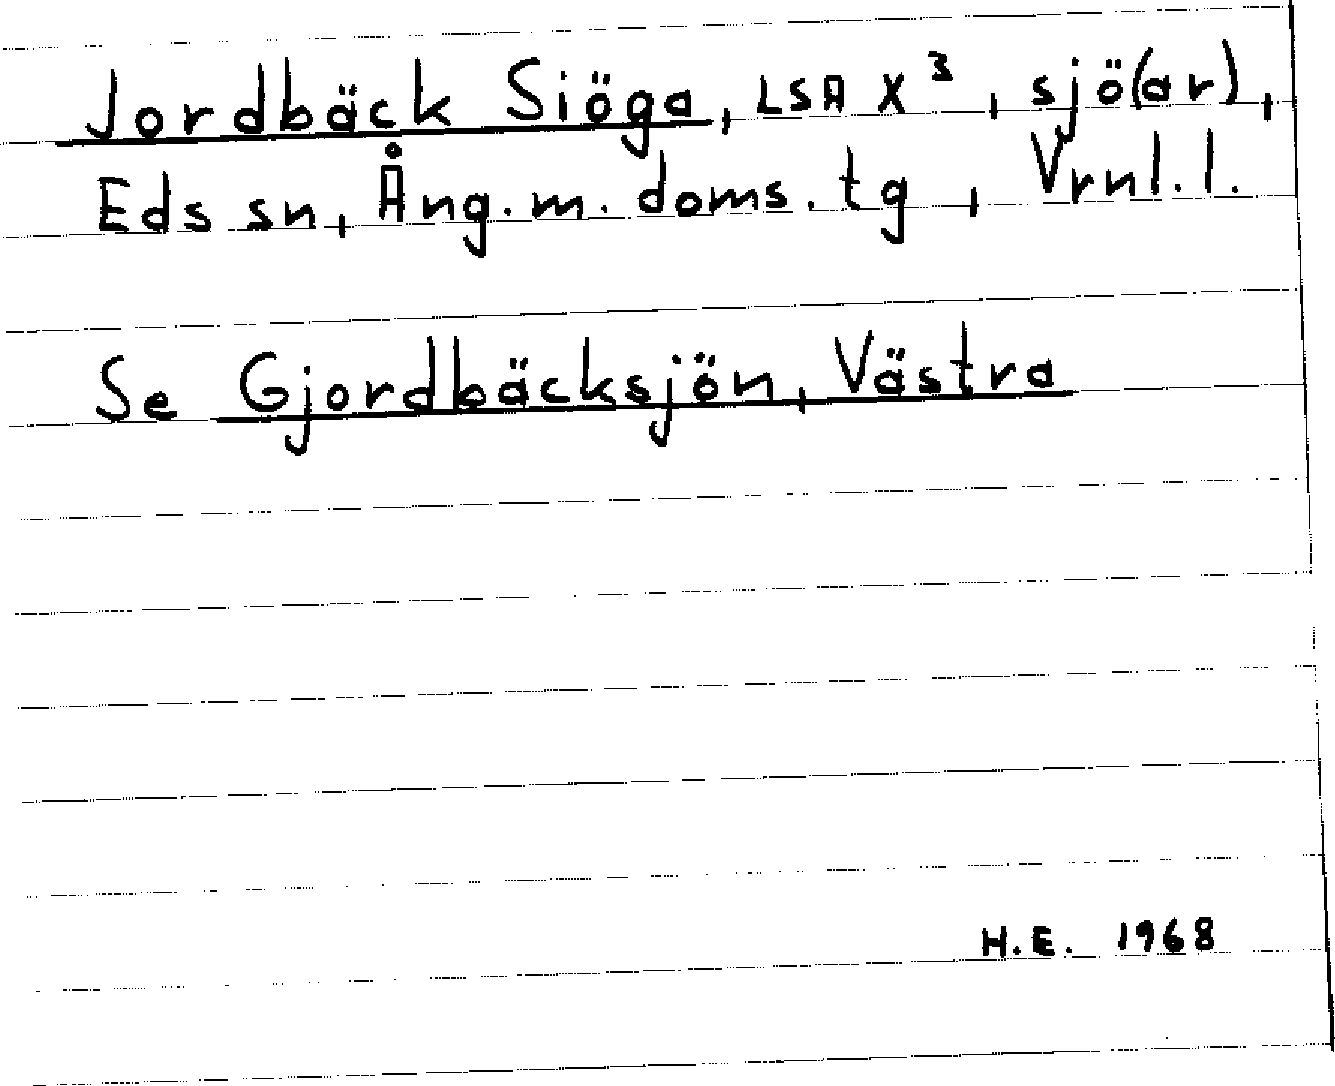 Jordbäck Siöga, LSA X³, sjö(ar),
Eds sn, Ång.m. doms. tg, Vrnl. l.
Se Gjordbäcksjön, Västra
H.E. 1968